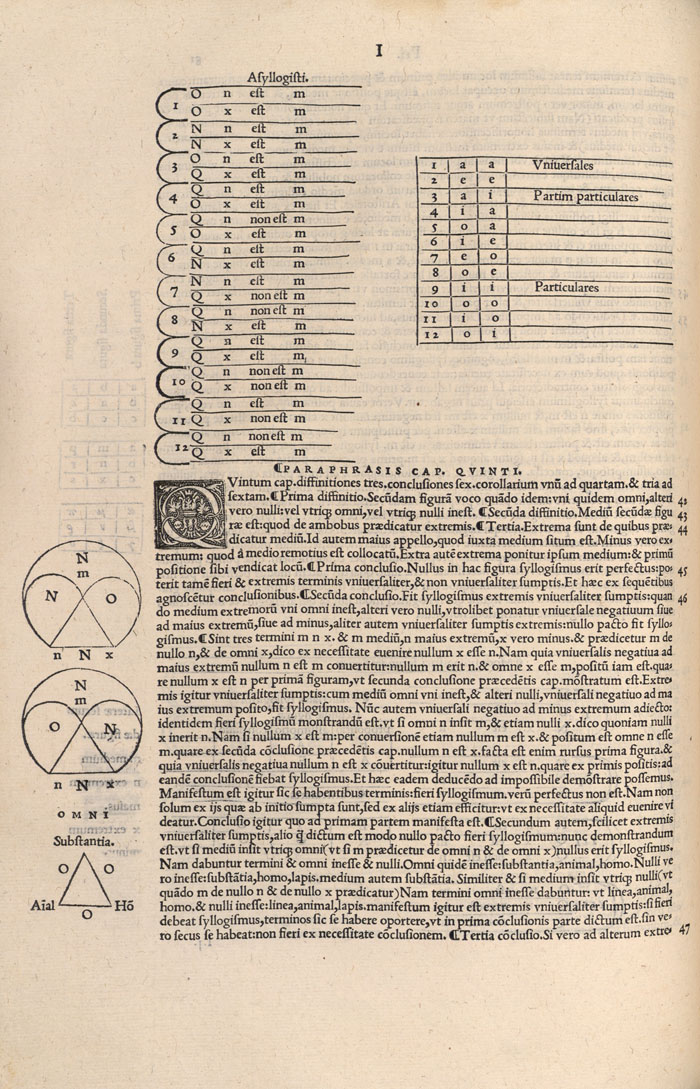 I
Asyllogisti.
1 O n est m
O x est m
2 N n est m
N x est m
3 O n est m
Q x est m
4 Q n est m
O x est m
5 Q n non est m
O x est m
6 Q n est m
N x est m
7 N n est m
Q x non est m
8 Q n non est m
N x est m
9 Q n est m
Q x est m
10 Q n non est m
Q x non est m
11 Q n est m
Q x non est m
12 Q n non est m
Q x est m
1 a a Vniuersales
2 e e
3 a i Partim particulares
4 i a
5 o a
6 i e
7 e o
8 o e
9 i i Particulares
10 o o
11 i o
12 o i
¶PARAPHRASIS CAP. QVINTI.
QVintum cap.diffinitiones tres.conclusiones sex.corollarium vnũ ad quartam.& tria ad
sextam.¶Prima diffinitio.Secũdam figurã voco quãdo idem:vni quidem omni,alteri 42
vero nulli:vel vtriq; omni,vel vtriq; nulli inest.¶Secũda diffinitio.Mediũ secũdæ figu 43
ræ est:quod de ambobus prædicatur extremis.¶Tertia.Extrema sunt de quibus præ- 44
dicatur mediũ.Id autem maius appello,quod iuxta medium situm est.Minus vero ex-
tremum: quod à medio remotius est collocatũ.Extra autẽ extrema ponitur ipsum medium:& primũ
positione sibi vendicat locũ.¶Prima conclusio.Nullus in hac figura syllogismus erit perfectus:pos- 45
terit tamẽ fieri & extremis terminis vniuersaliter,& non vniuersaliter sumptis.Et hæc ex sequẽtibus
agnoscẽtur conclusionibus.¶Secũda conclusio.Fit syllogismus extremis vniuersaliter sumptis:quan 46
do medium extremorũ vni omni inest,alteri vero nulli,vtrolibet ponatur vniuersale negatiuum siue
ad maius extremũ,siue ad minus,aliter autem vniuersaliter sumptis extremis:nullo pacto fit syllo-
gismus.¶Sint tres termini m n x. & m mediũ,n maius extremũ,x vero minus.& prædicetur m de
nullo n,& de omni x,dico ex necessitate euenire nullum x esse n.Nam quia vniuersalis negatiua ad
maius extremũ nullum n est m conuertitur:nullum m erit n.& omne x esse m,positũ iam est.qua-
re nullum x est n per primã figuram,vt secunda conclusione præcedẽtis cap.mõstratum est.Extre-
mis igitur vniuersaliter sumptis:cum mediũ omni vni inest,& alteri nulli,vniuersali negatiuo ad ma
ius extremum posito,fit syllogismus. Nũc autem vniuersali negatiuo ad minus extremum adiecto:
identidem fieri syllogismũ monstrandũ est.vt si omni n insit m,& etiam nulli x.dico quoniam nulli
x inerit n.Nam si nullum x est m:per conuersionẽ etiam nullum m est x.& positum est omne n esse
m.quare ex secũda cõclusione præcedẽtis cap.nullum n est x.facta est enim rursus prima figura.&
quia vniuersalis negatiua nullum n est x cõuertitur:igitur nullum x est n.quare ex primis positis:ad
eandẽ conclusionẽ fiebat syllogismus.Et hæc eadem deducẽdo ad impossibile demõstrare possemus.
Manifestum est igitur sic se habentibus terminis:fieri syllogismum.verũ perfectus non est.Nam non
solum ex ijs quæ ab initio sumpta sunt,sed ex alijs etiam efficitur:vt ex necessitate aliquid euenire vi
deatur.Conclusio igitur quo ad primam partem manifesta est.¶Secundum autem,scilicet extremis
vniuersaliter sumptis,alio q̃ dictum est modo nullo pacto fieri syllogismum:nunc demonstrandum
est.vt si mediũ insit vtriq; omni(vt si m prædicetur de omni n & de omni x)nullus erit syllogismus.
Nam dabuntur termini & omni inesse & nulli.Omni quidẽ inesse:substantia,animal,homo.Nulli ve
ro inesse:substãtia,homo,lapis.medium autem substãtia. Similiter & si medium insit vtriq; nulli(vt
quãdo m de nullo n & de nullo x prædicatur)Nam termini omni inesse dabuntur: vt linea,animal,
homo.& nulli inesse:linea,animal,lapis.manifestum igitur est extremis vniuersaliter sumptis:si fieri
debeat syllogismus,terminos sic se habere oportere,vt in prima cõclusionis parte dictum est.sin ve-
ro secus se habeat:non fieri ex necessitate cõclusionem. ¶Tertia cõclusio.Si vero ad alterum extre- 47
N
m
N O
n N x
N
m
O N
n N x
OMNI
Substantia.
O O
Aĩal Hõ
O